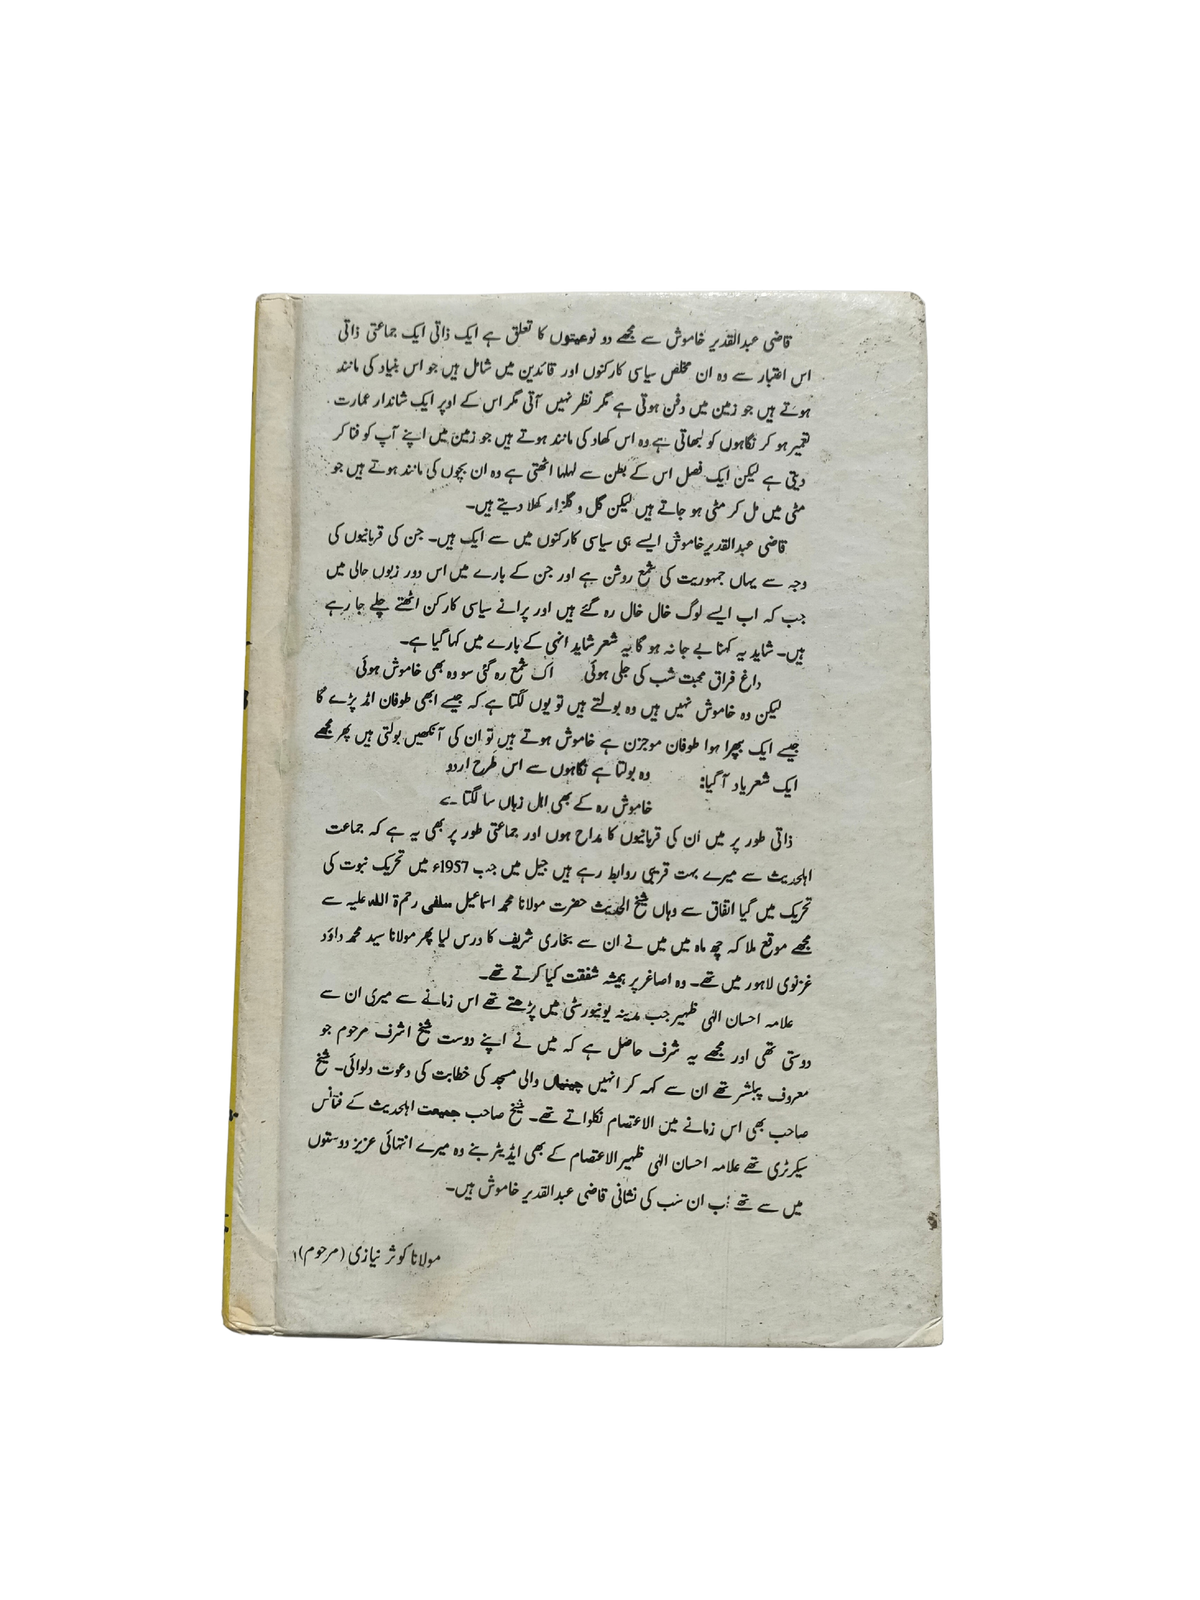 قاضی عبدالقدیر خاموش سے مجھے دو نوعیتوں کا تعلق ہے ایک ذاتی ایک جماعتی ذاتی
اس اعتبار سے وہ ان مخلص سیاسی کارکنوں اور قائدین میں شامل ہیں جو اس بنیاد کی مانند
ہوتے ہیں جو زمین میں دفن ہوتی ہے مگر نظر نہیں آتی مگر اس کے اوپر ایک شاندار عمارت
تعمیر ہو کر نگاہوں کو لبھاتی ہے وہ اس کھاد کی مانند ہوتے ہیں جو زمین میں اپنے آپ کو فنا کر
دیتی ہے لیکن ایک فصل اس کے بطن سے لہلہا اٹھتی ہے وہ ان بیجوں کی مانند ہوتے ہیں جو
مٹی میں مل کر مٹی ہو جاتے ہیں لیکن گل و گلزار کھلا دیتے ہیں۔
قاضی عبدالقدیر خاموش ایسے ہی سیاسی کارکنوں میں سے ایک ہیں۔ جن کی قربانیوں کی
وجہ سے یہاں جمہوریت کی شمع روشن ہے اور جن کے بارے میں اس دور زبوں حالی میں
جب کہ اب ایسے لوگ خال خال رہ گئے ہیں اور پرانے سیاسی کارکن اٹھتے چلے جا رہے
ہیں۔ شاید یہ کہنا بے جا نہ ہو گا یہ شعر شاید انہی کے بارے میں کہا گیا ہے۔
داغ فراق محبت شب کی جلی ہوئی اک شمع رہ گئی سو وہ بھی خاموش ہوئی
لیکن وہ خاموش نہیں ہیں وہ بولتے ہیں تو یوں لگتا ہے کہ جیسے ابھی طوفان امڈ پڑے گا
جیسے ایک بپھرا ہوا طوفان موجزن ہے خاموش ہوتے ہیں تو ان کی آنکھیں بولتی ہیں پھر مجھے
ایک شعر یاد آگیا: وہ بولتا ہے نگاہوں سے اس طرح اردو
خاموش رہ کے بھی اہل زباں سا لگتا ہے
ذاتی طور پر میں ان کی قربانیوں کا مداح ہوں اور جماعتی طور پر بھی یہ ہے کہ جماعت
اہلحدیث سے میرے بہت قریبی روابط رہے ہیں جیل میں جب 1957ء میں تحریک نبوت کی
تحریک میں گیا اتفاق سے وہاں شیخ الحدیث حضرت مولانا محمد اسماعیل سلفی رحمۃ اللہ علیہ سے
مجھے موقع ملا کہ چھ ماہ میں میں نے ان سے بخاری شریف کا درس لیا پھر مولانا سید محمد داؤد
غزنوی لاہور میں تھے۔ وہ اصاغر پر ہمیشہ شفقت کیا کرتے تھے۔
علامہ احسان الٰہی ظہیر جب مدینہ یونیورسٹی میں پڑھتے تھے اس زمانے سے میری ان سے
دوستی تھی اور مجھے یہ شرف حاصل ہے کہ میں نے اپنے دوست شیخ اشرف مرحوم جو
معروف پبلشر تھے ان سے کہہ کر انہیں چینیاں والی مسجد کی خطابت کی دعوت دلوائی۔ شیخ
صاحب بھی اس زمانے میں الاعتصام نکلواتے تھے۔ شیخ صاحب جمیعت اہلحدیث کے فنانس
سیکرٹری تھے علامہ احسان الٰہی ظہیر الاعتصام کے بھی ایڈیٹر بنے وہ میرے انتہائی عزیز دوستوں
میں سے تھے اب ان سب کی نشانی قاضی عبدالقدیر خاموش ہیں۔
مولانا کوثر نیازی (مرحوم)